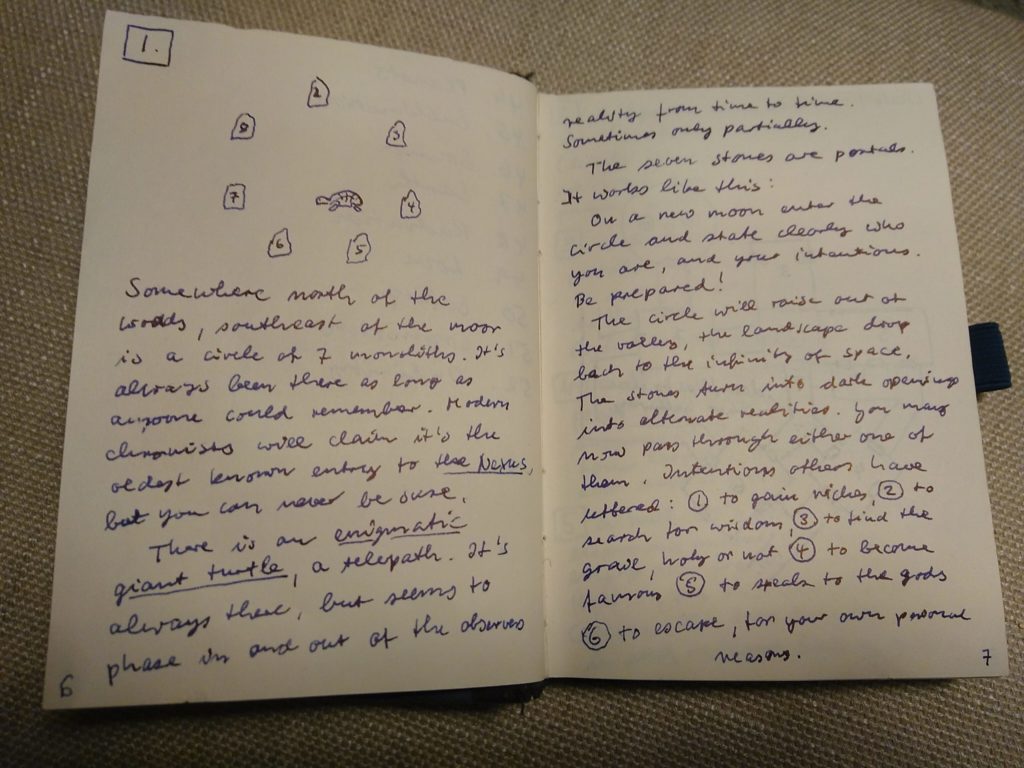 1.
2
8
3
7
4
6
5
Somewhere north of the
woods, southeast of the moor
is a circle of 7 monoliths. It's
always been there as long as
anyone could remember. Modern
chronists will claim it's the
oldest known entry to the Nexus,
but you can never be sure.
There is an enigmatic
giant turtle, a telepath. It's
always there, but seems to
phase in and out of the observes
6
reality from time to time.
Sometimes only partially.
The seven stones are portals.
It works like this:
On a new moon enter the
circle and state clearly who
you are, and your intentions.
Be prepared!
The circle will raise out of
the valley, the landscape drop
back to the infinity of space.
The stones turn into dark openings
into alternate realities. You may
now pass through either one of
them. Intentions others have
uttered: 1 to gain riches, 2 to
search for wisdom, 3 to find the
grail, holy or not 4 to become
famous 5 to speak to the gods
6 to escape, for your own personal
reasons.
7